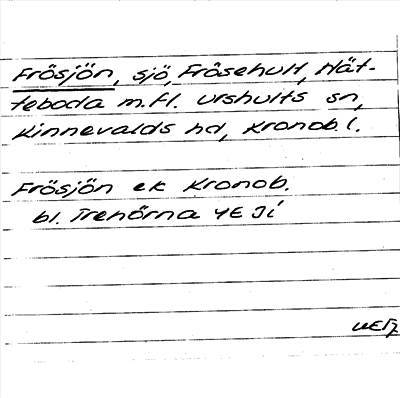 Frösjön, sjö, Fråsehult, Nät-
teboda m.fl. Urshults sn,
Kinnevalds hd, Kronob. l.
Frösjön ek Kronob.
bl. Trehörna 4E Ji